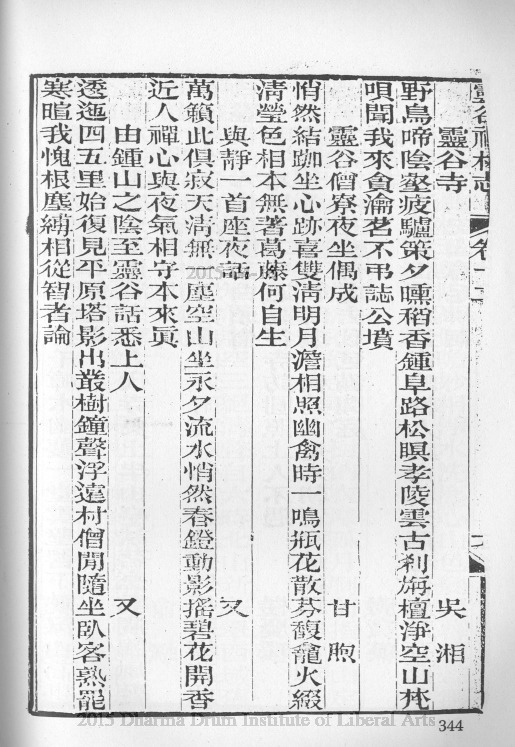 靈谷禪林志 卷十三
靈谷寺 吳湘
野鳥啼陰壑疲驢策夕曛稻香鍾阜路松暝孝陵雲古剎旃檀淨空山梵
唄聞我來貪瀹茗不弔誌公墳
靈谷僧寮夜坐偶成 甘煦
悄然結跏坐心跡喜雙淸明月澹相照幽禽時一鳴瓶花散芬馥龕火綴
淸瑩色相本無著葛藤何自生
與靜一首座夜話 又
萬籟此俱寂天淸無一塵空山坐永夕流水悄然春鐙動影搖碧花開香
近人禪心與夜氣相守本來眞
由鍾山之陰至靈谷話悉上人 又
透迤四五里始復見平原塔影出叢樹鐘聲浮遠村僧閒隨坐臥客熟罷
寒暄我愧根塵縛相從智者論
344
2015 Dharma Drum Institute of Liberal Arts